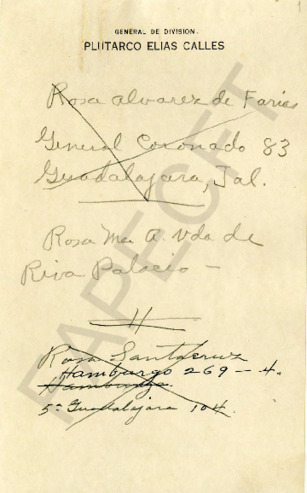 1
GENERAL DE DIVISION.
PLUTARCO ELIAS CALLES
Rosa alvarez de Farias
General Coronado 83
Guadalajara, Jal.
Rosa Ma A. Vda de
Riva Palacio -
Rosa Santacruz
Hamburgo 269 - 4.
Hamburgo.
5a Guadalajara 104.
FAPECFT